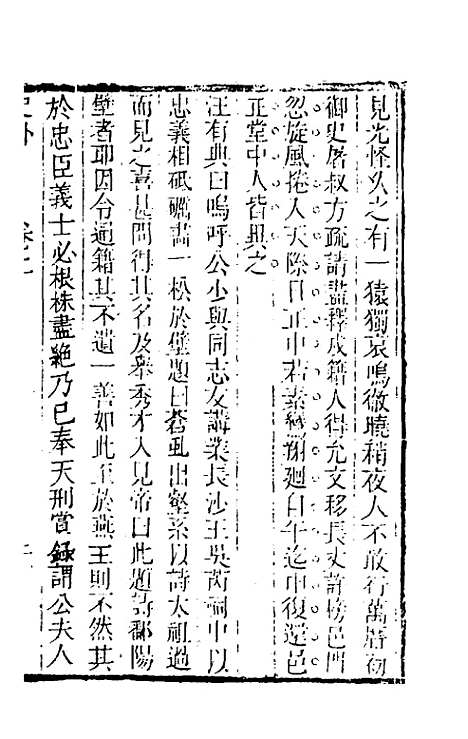 見光怪久之有一猿獨哀鳴徹曉稍夜人不敢行萬曆初
御史屠叔方疏請盡釋戍籍人得允文移長丈許榜邑門
忽旋風捲入天際日正中若素練翱廻自午迄申復還邑
正堂中人皆異之
汪有典曰嗚呼公少與同志友講業長沙王吳芮祠中以
忠義相砥礪畵一松於壁題曰蒼虬出壑系以詩太祖過
而見之喜甚問得其名及舉秀才入見帝曰此題詩鄱陽
壁者耶因令通籍其不遺一善如此至於燕王則不然其
於忠臣義士必根株盡絶乃已奉天刑賞錄謂公夫人
史外 卷之二